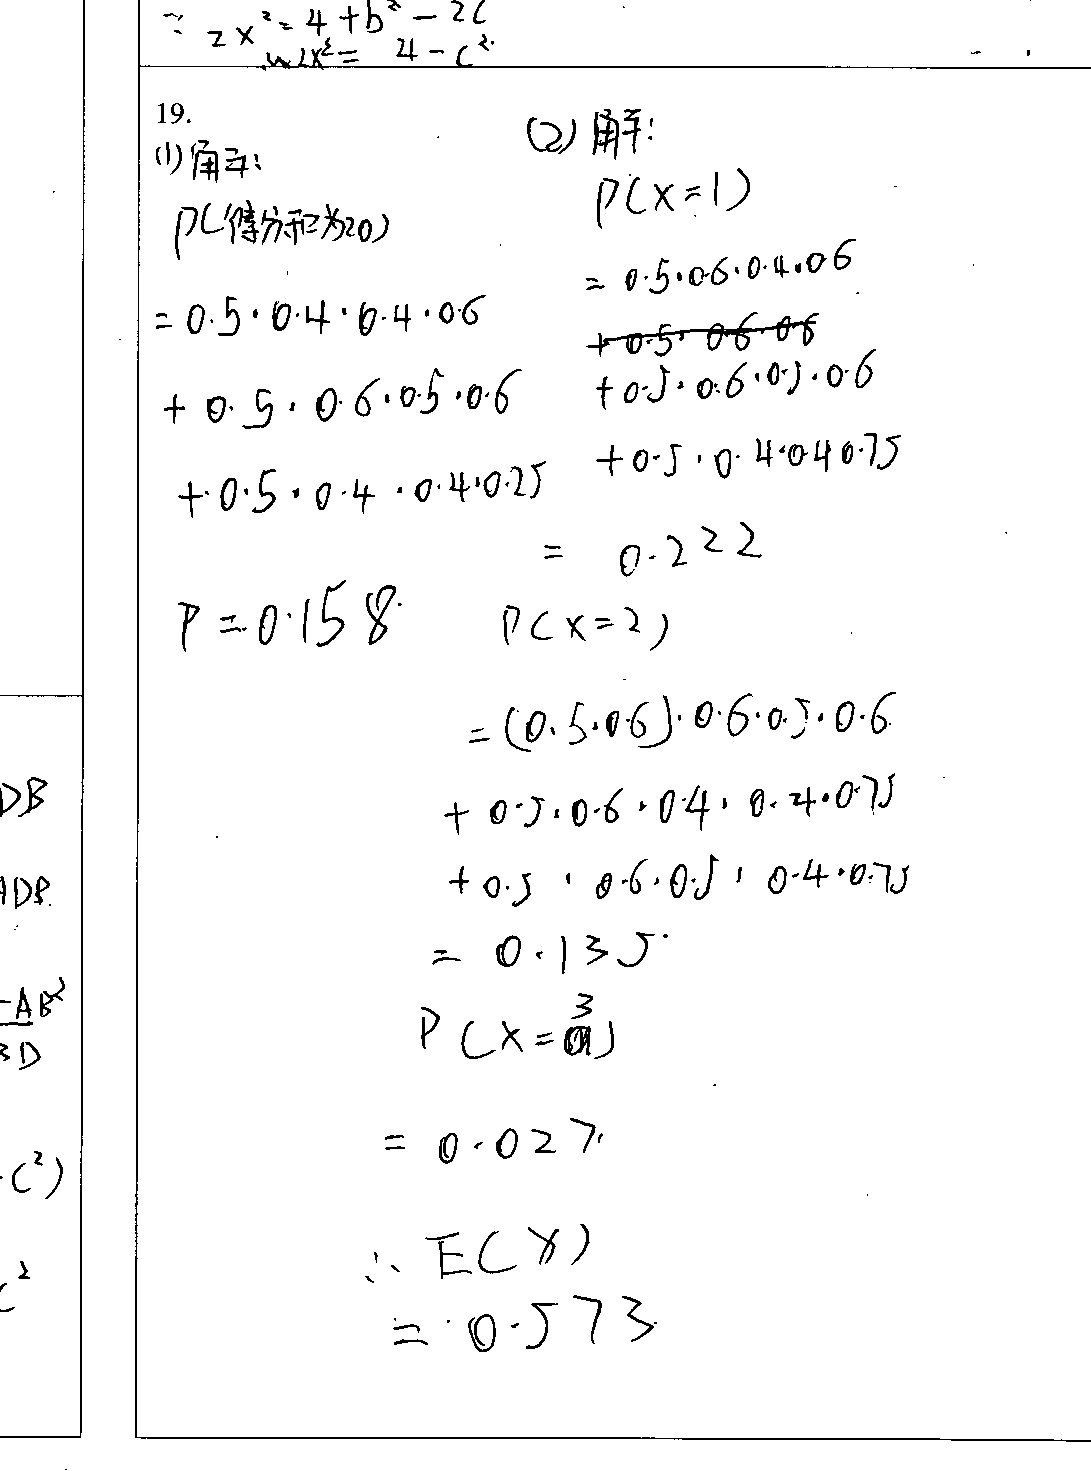 ∵ 2x²=4+b²-2c
2x²= 4-c²
19.
(1)解:
P(得分和为20)
=0.5·0.4·0.4·0.6
+0.5·0.6·0.5·0.6
+0.5·0.4·0.4·0.25
P=0.158
(2)解:
P(X=1)
=0.5·0.6·0.4·0.6
+0.5·0.6·0.6
+0.5·0.6·0.5·0.6
+0.5·0.4·0.4 0.75
= 0.222
P(X=2)
=(0.5·0.6)·0.6·0.5·0.6
+0.5·0.6·0.4·0.4·0.75
+0.5·0.6·0.5·0.4·0.75
=0.135
P(X=3)
=0.027
∴E(X)
=0.573
DB
ADB
-AB²
BD
·c²)
c²